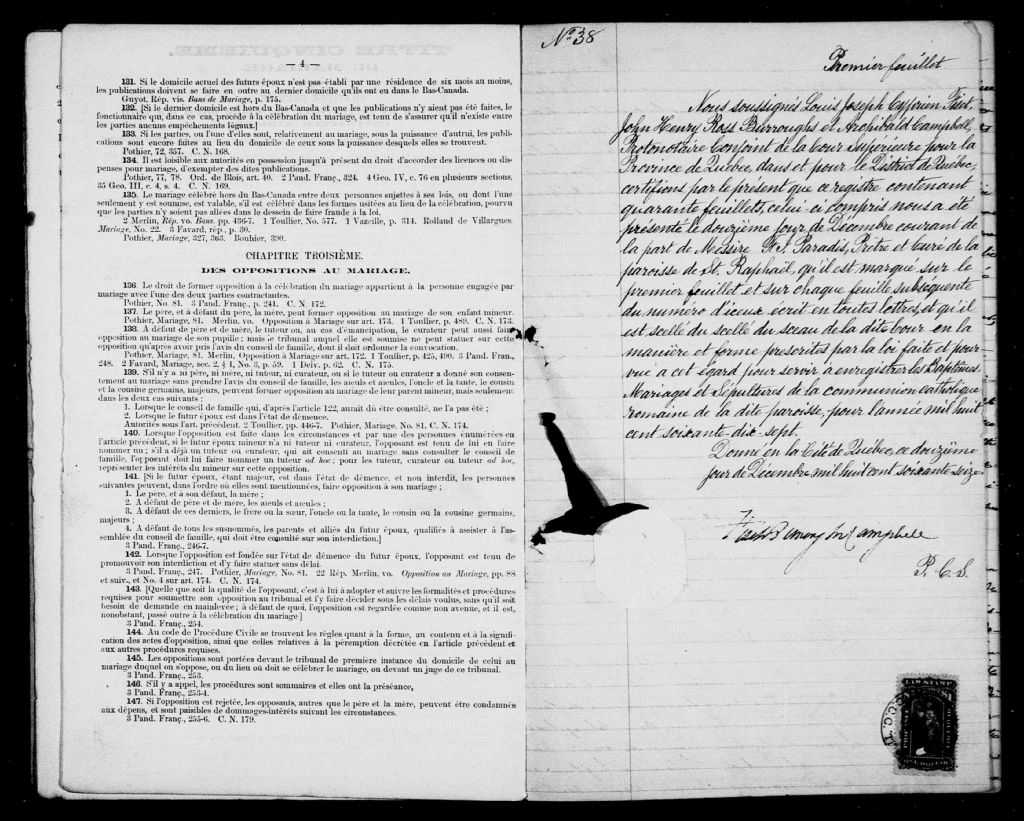 — 4 —
131. Si le domicile actuel des futurs époux n'est pas établi par une résidence de six mois au moins,
les publications doivent se faire en outre au dernier domicile qu'ils ont eu dans le Bas-Canada.
Guyot, Rép. vis. Bans de Mariage, p. 175.
132. [Si le dernier domicile est hors du Bas-Canada et que les publications n'y aient pas été faites, le
fonctionnaire qui, dans ce cas, procède à la célébration du mariage, est tenu de s'assurer qu'il n'existe entre
les parties aucuns empêchements légaux.]
133. Si les parties, ou l'une d'elles sont, relativement au mariage, sous la puissance d'autrui, les publi-
cations sont encore faites au lieu du domicile de ceux sous la puissance desquels elles se trouvent.
Pothier, 72, 357. C. N. 168.
134. Il est loisible aux autorités en possession jusqu'à présent du droit d'accorder des licences ou dis-
penses pour mariage, d'exempter des dites publications.
Pothier, 77, 78. Ord. de Blois, art. 40. 2 Pand. Franç., 324. 4 Geo. IV, c. 76 en plusieurs sections,
35 Geo. III, c. 4, s. 4. C. N. 169.
135. Le mariage célébré hors du Bas-Canada entre deux personnes sujettes à ses lois, ou dont l'une
seulement y est soumise, est valable, s'il est célébré dans les formes usitées au lieu de la célébration, pourvu
que les parties n'y soient pas allées dans le dessein de faire fraude à la loi.
2 Merlin, Rép. vo. Bans, pp. 436-7. 1 Toullier, No. 577. 1 Vazeille, p. 314. Rolland de Villargues,
Mariage, No. 22. 3 Favard, rép., p. 30.
Pothier, Mariage, 327, 363. Bouhier, 390.
CHAPITRE TROISIÈME.
DES OPPOSITIONS AU MARIAGE.
136. Le droit de former opposition à la célébration du mariage appartient à la personne engagée par
mariage avec l'une des deux parties contractantes.
Pothier, No. 81. 3 Pand. Franç., p. 241. C. N. 172.
137. Le père, et à défaut du père, la mère, peut former opposition au mariage de son enfant mineur.
Pothier, Mariage, 81. Merlin, vo. Opposition à Mariage sur art. 173. 1 Toullier, p. 489. C. N. 173.
138. A défaut de père et de mère, le tuteur ou, au cas d'émancipation, le curateur peut aussi faire
opposition au mariage de son pupille; mais le tribunal auquel elle est soumise ne peut statuer sur cette
opposition qu'après avoir pris l'avis du conseil de famille, dont il doit ordonner la convocation.
Pothier, Mariage, 81. Merlin, Opposition à Mariage sur art. 172. 1 Toullier, p. 425, 490. 3 Pand. Fran.,
248. 2 Favard, Mariage, sec. 2, § 1, No. 3, p. 59. 1 Delv. p. 62. C. N. 175.
139. S'il n'y a ni père, ni mère, ni tuteur, ni curateur, ou si le tuteur ou curateur a donné son consen-
tement au mariage sans prendre l'avis du conseil de famille, les aïeuls et aïeules, l'oncle et la tante, le cousin
et la cousine germains, majeurs, peuvent former opposition au mariage de leur parent mineur, mais seulement
dans les deux cas suivants :
1. Lorsque le conseil de famille qui, d'après l'article 122, aurait dû être consulté, ne l'a pas été ;
2. Lorsque le futur époux est dans l'état de démence.
Autorités sous l'art. précédent. 2 Toullier, pp. 446-7. Pothier, Mariage, No. 81. C. N. 174.
140. Lorsque l'opposition est faite dans les circonstances et par une des personnes énumérées en
l'article précédent, si le futur époux mineur n'a ni tuteur, ni curateur, l'opposant est tenu de lui en faire
nommer un ; s'il a déjà un tuteur ou curateur, qui ait consenti au mariage sans consulter le conseil de
famille, l'opposant doit lui faire nommer un tuteur ad hoc ; pour les tuteur, curateur ou tuteur ad hoc,
représenter les intérêts du mineur sur cette opposition.
141. [Si le futur époux, étant majeur, est dans l'état de démence, et non interdit, les personnes
suivantes peuvent, dans l'ordre où elles sont mentionnées, faire opposition à son mariage ;
1. Le père, et à son défaut, la mère ;
2. A défaut de père et de mère, les aïeuls et aïeules ;
3. A défaut de ces derniers, le frère ou la sœur, l'oncle ou la tante, le cousin ou la cousine germains,
majeurs ;
4. A défaut de tous les susnommés, les parents et alliés du futur époux, qualifiés à assister à l'as-
semblée du conseil de famille, qui doit être consulté sur son interdiction.]
3 Pand. Franç., 246-7.
142. Lorsque l'opposition est fondée sur l'état de démence du futur époux, l'opposant est tenu de
promouvoir son interdiction et d'y faire statuer sans délai.
3 Pand. Franç., 247. Pothier, Mariage, No. 81. 22 Rép. Merlin, vo. Opposition au Mariage, pp. 88
et suiv., et No. 4 sur art. 174. C. N. 174.
143. [Quelque soit la qualité de l'opposant, c'est à lui à adopter et suivre les formalités et procédures
requises pour soumettre son opposition au tribunal et l'y faire décider sous les délais voulus, sans qu'il soit
besoin de demande en mainlevée ; à défaut de quoi, l'opposition est regardée comme non avenue, et il est,
nonobstant, passé outre à la célébration du mariage]
3 Pand. Franç., 254.
144. Au code de Procédure Civile se trouvent les règles quant à la forme, au contenu et à la signifi-
cation des actes d'opposition, ainsi que celles relatives à la péremption décrétée en l'article précédent et
aux autres procédures requises.
145. Les oppositions sont portées devant le tribunal de première instance du domicile de celui au
mariage duquel on s'oppose, ou du lieu où doit se célébrer le mariage, ou devant un juge de ce tribunal.
3 Pand. Franç., 253.
146. S'il y a appel, les procédures sont sommaires et elles ont la préséance,
3 Pand. Franç., 253-4.
147. Si l'opposition est rejetée, les opposants, autres que le père et la mère, peuvent être condamnés
aux dépens, et sont paisibles de dommages-intérêts suivant les circonstances.
3 Pand. Franç., 255-6. C. N. 179.
No. 38
Premier feuillet
Nous soussignés Louis Joseph Cyprien Fiset,
John Henry Ross Burroughs et Archibald Campbell,
Protonotaire Conjoint de la Cour Supérieure pour la
Province de Québec, dans et pour le District de Québec,
certifions par le présent que ce registre contenant
quarante feuillets, celui-ci compris nous a été
présenté le douzième jour de Décembre courant de
la part de Messire Paradis, Prêtre et Curé de la
paroisse de St. Raphaël, qu'il est marqué sur le
premier feuillet et sur chaque feuille subsequente
du numéro d'iceux écrit en toutes lettres, et qu'il
est scellé du scellé du sceau de la dite Cour en la
manière et forme prescrites par la loi faite et pour-
vue a cet égard pour servir a enregistrer les Baptêmes,
Mariages et Sépultures de la communion catholique
romaine de la dite paroisse, pour l'année mil huit
cent soixante-dix-sept.
Donné en la Cité de Québec, ce douzième
jour de Décembre mil huit cent soixante-seize.
Fiset Burroughs Campbell
P. C. S.
LAW STAMP
ONE DOLLAR